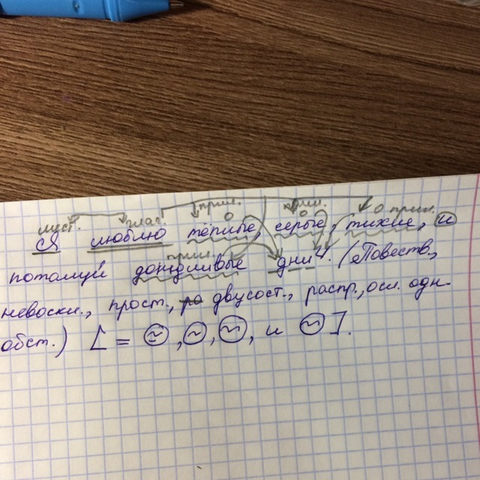 прил. прил. прил.
глаг.
Я люблю тёплые, серые, тихие, и
прил.
пожалуй дождливые дни⁴. (Повеств.,
невоскл., прост., двусост., распр., осл. одн
обст.) [ = , , , и ].